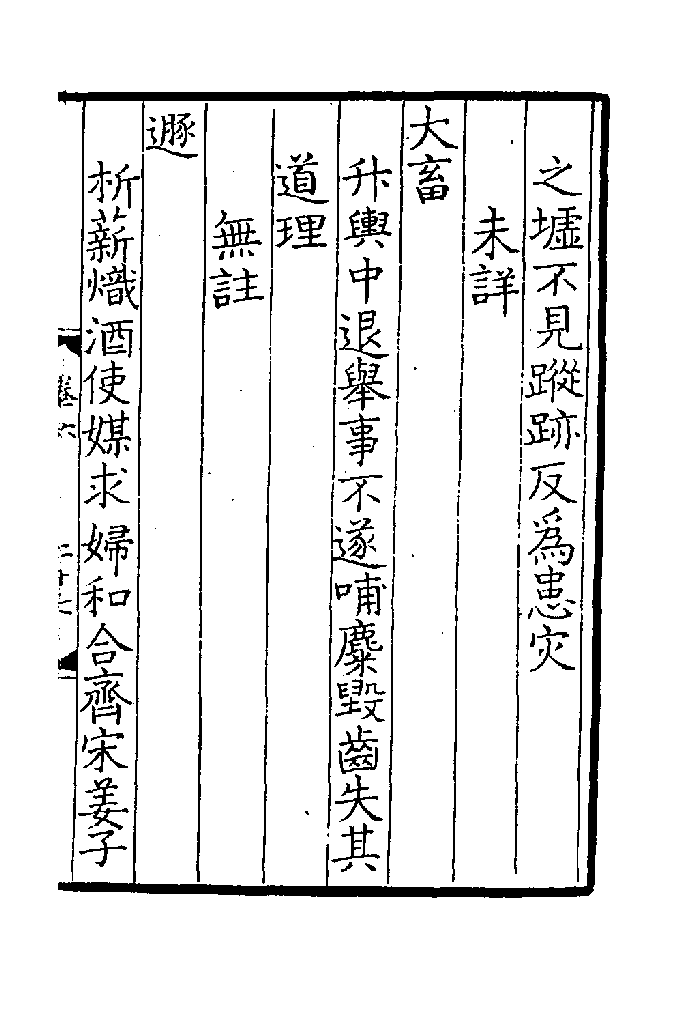 之墟不見蹤跡反爲患灾
未詳
大畜
升輿中退舉事不遂哺麋毀齒失其
道理
無註
遯
析薪熾酒使媒求婦和合齊宋姜子